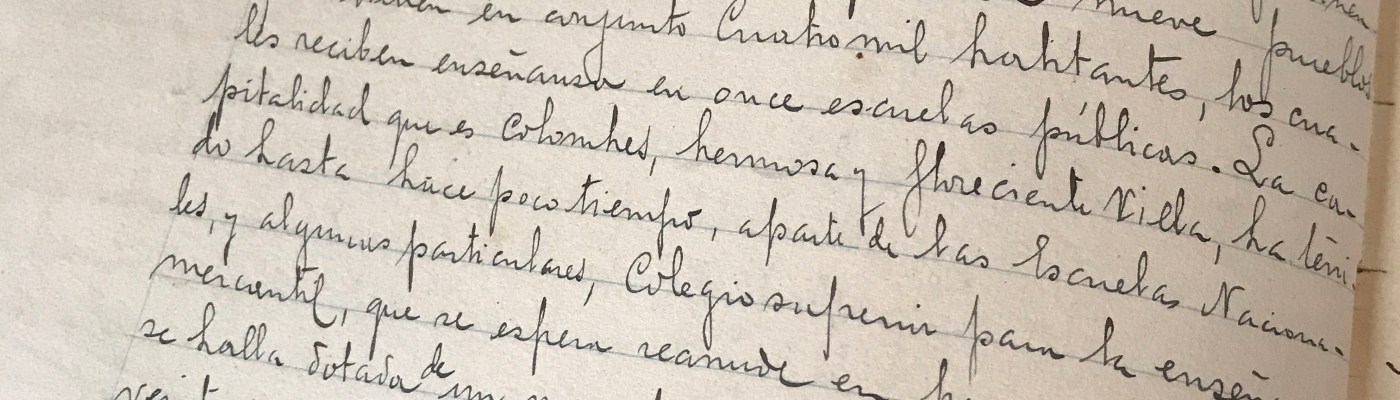 nueve pueblos
en conjunto Cuatro mil habitantes, los cua-
les reciben enseñansa en once escuelas públicas. La ca-
pitalidad que es Colombres, hermosa y floreciente Villa, ha teni-
do hasta hace poco tiempo, aparte de las Escuelas Naciona-
les, y algunas particulares, Colegio superior para la enseñ
mercantil, que se espera reanude en
se halla dotada de